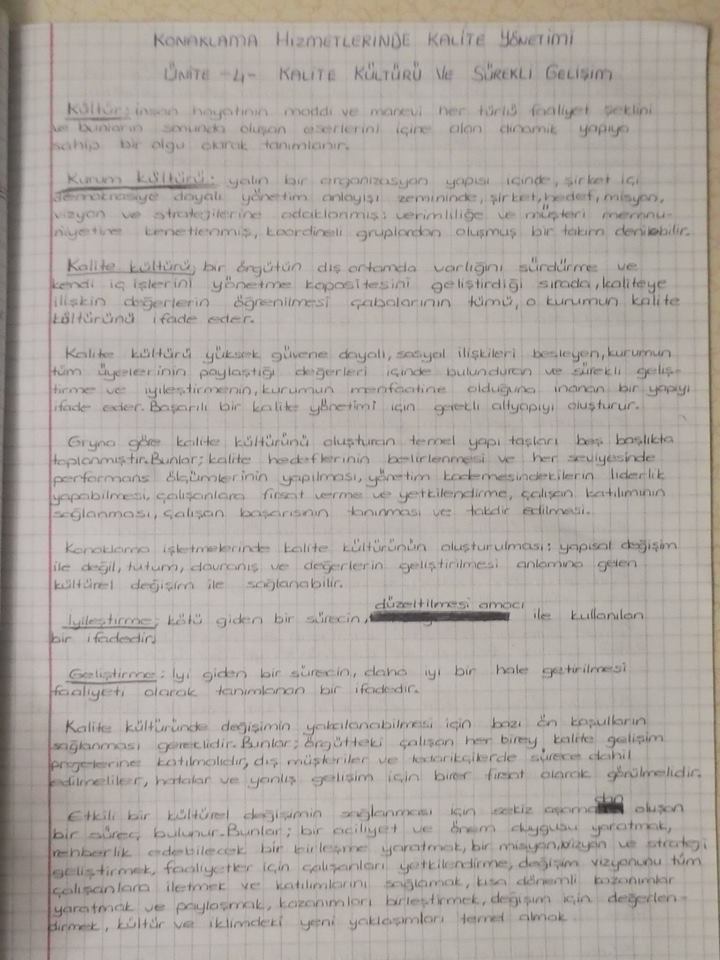 KONAKLAMA HİZMETLERİNDE KALİTE YÖNETİMİ
ÜNİTE -4- KALİTE KÜLTÜRÜ VE SÜREKLİ GELİŞİM
Kültür; insan hayatının maddi ve manevi her türlü faaliyet şeklini
ve bunların sonunda oluşan eserlerini içine alan dinamik yapıya
sahip bir olgu olarak tanımlanır.
Kurum kültürü: yalın bir organizasyon yapısı içinde, şirket içi
demokrasiye dayalı yönetim anlayışı zemininde, şirket, hedef, misyon,
vizyon ve stratejilerine odaklanmış; verimliliğe ve müşteri memnu-
niyetine kenetlenmiş, koordineli gruplardan oluşmuş bir takım denilebilir.
Kalite kültürü; bir örgütün dış ortamda varlığını sürdürme ve
kendi iç işlerini yönetme kapasitesini geliştirdiği sırada, kaliteye
ilişkin değerlerin öğrenilmesi çabalarının tümü, o kurumun kalite
kültürünü ifade eder.
Kalite kültürü yüksek güvene dayalı, sosyal ilişkileri besleyen, kurumun
tüm üyelerinin paylaştığı değerleri içinde bulunduran ve sürekli geliş-
tirme ve iyileştirmenin, kurumun menfaatine olduğuna inanan bir yapıyı
ifade eder. Başarılı bir kalite yönetimi için gerekli altyapıyı oluşturur.
Gryna göre kalite kültürünü oluşturan temel yapı taşları beş başlıkta
toplanmıştır. Bunlar; kalite hedeflerinin belirlenmesi ve her seviyesinde
performans ölçümlerinin yapılması, yönetim kademesindekilerin liderlik
yapabilmesi, çalışanlara fırsat verme ve yetkilendirme, çalışan katılımının
sağlanması, çalışan başarısının tanınması ve takdir edilmesi.
Konaklama işletmelerinde kalite kültürünün oluşturulması; yapısal değişim
ile değil, tutum, davranış ve değerlerin geliştirilmesi anlamına gelen
kültürel değişim ile sağlanabilir.
İyileştirme; kötü giden bir sürecin, düzeltilmesi amacı ile kullanılan
bir ifadedir.
Geliştirme: İyi giden bir sürecin, daha iyi bir hale getirilmesi
faaliyeti olarak tanımlanan bir ifadedir.
Kalite kültüründe değişimin yakalanabilmesi için bazı ön koşulların
sağlanması gereklidir. Bunlar; örgütteki çalışan her birey, kalite gelişim
projelerine katılmalıdır, dış müşteriler ve tedarikçilerde sürece dahil
edilmeliler, hatalar ve yanlış gelişim için birer fırsat olarak görülmelidir.
Etkili bir kültürel değişimin sağlanması için sekiz aşamadan oluşan
bir süreç bulunur. Bunlar; bir aciliyet ve önem duygusu yaratmak,
rehberlik edebilecek bir birleşme yaratmak, bir misyon, vizyon ve strateji
geliştirmek, faaliyetler için çalışanları yetkilendirme, değişim vizyonunu tüm
çalışanlara iletmek ve katılımlarını sağlamak, kısa dönemli kazanımlar
yaratmak ve paylaşmak, kazanımları birleştirmek, değişim için değerlen-
dirmek, kültür ve iklimdeki yeni yaklaşımları temel almak.